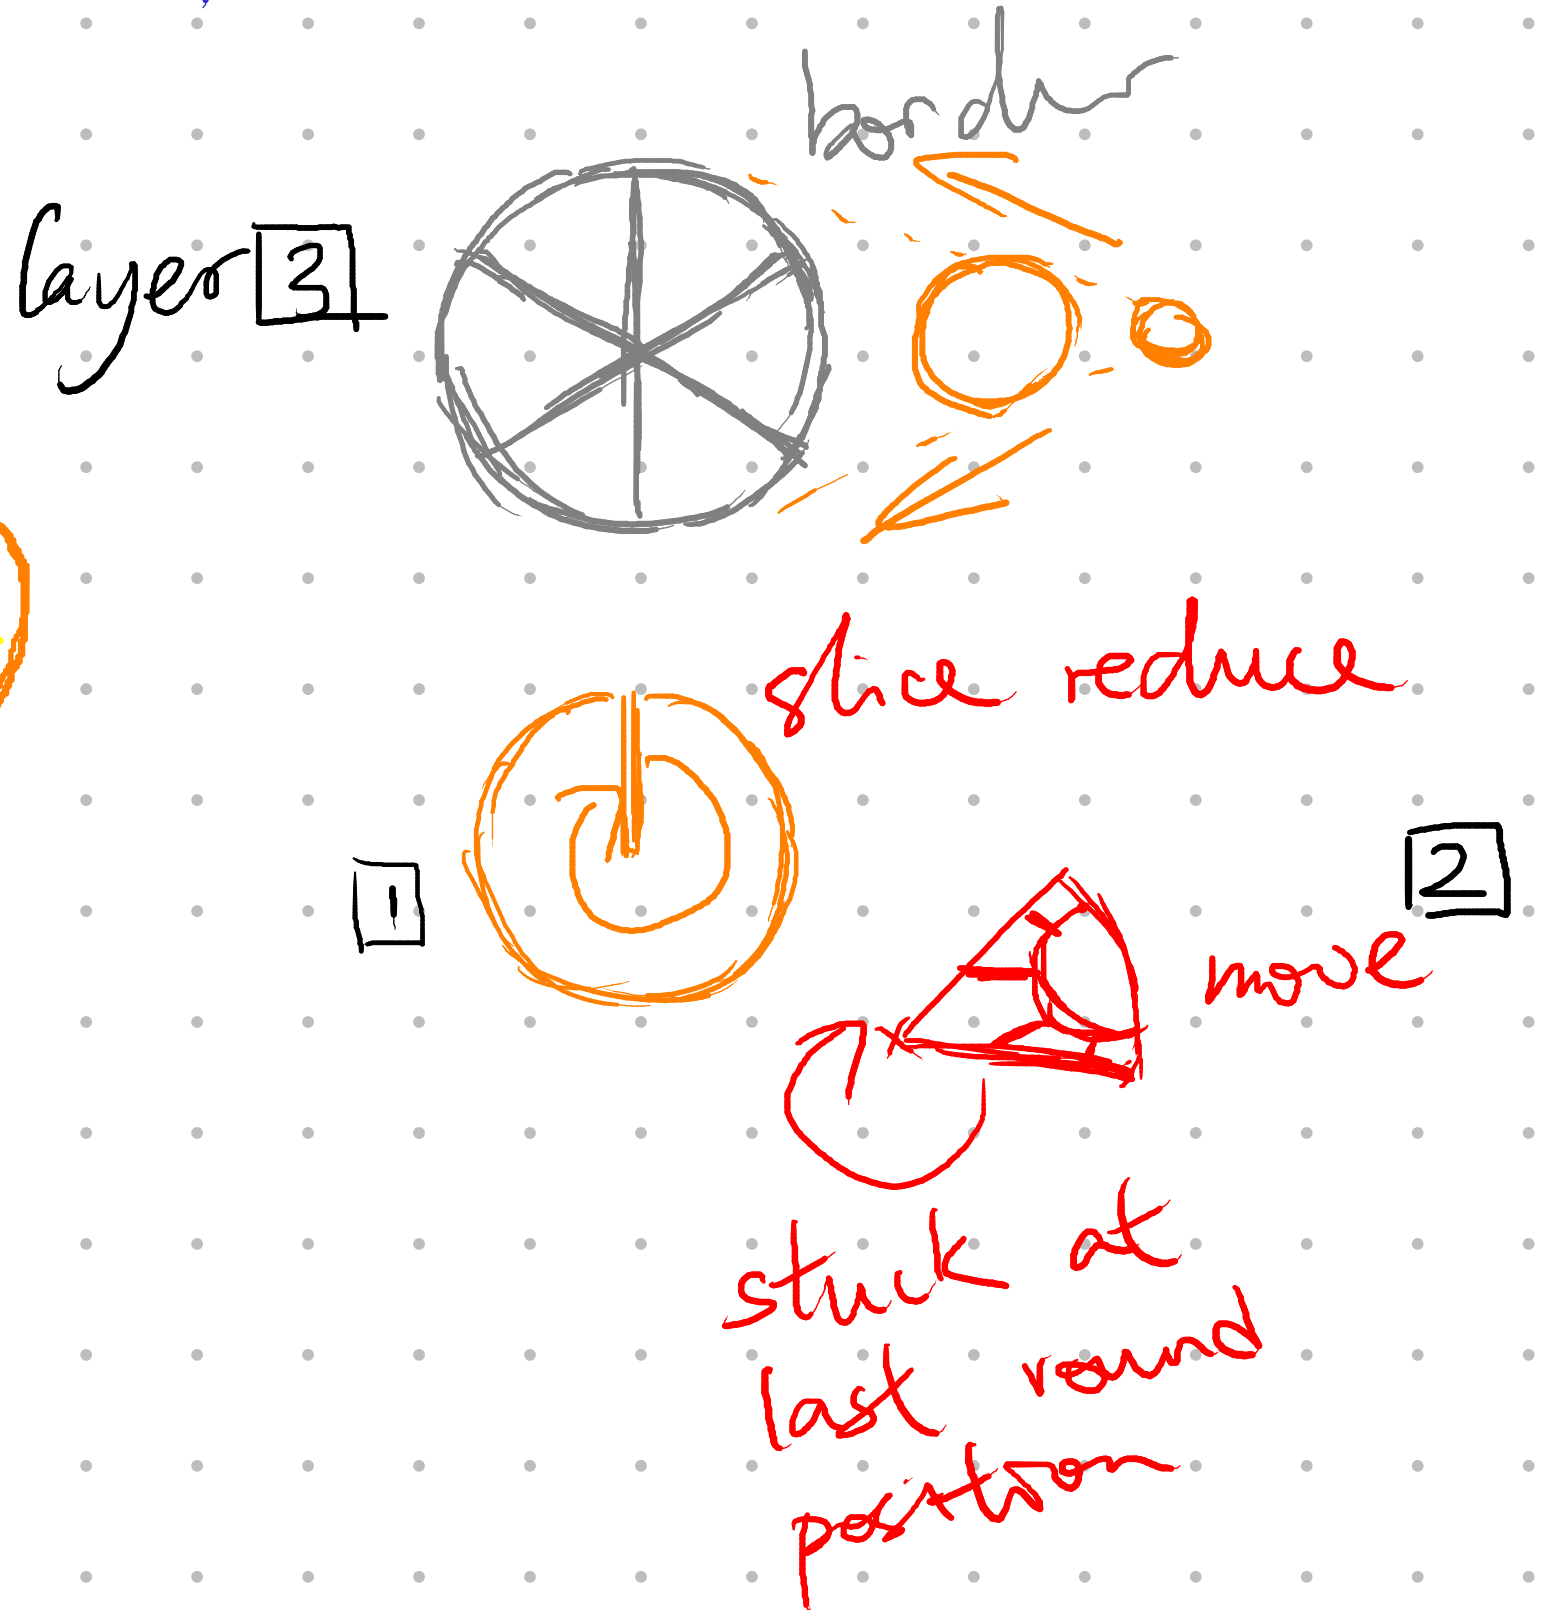 border
layer 3
slice reduce
1
2
move
stuck at
last round
position